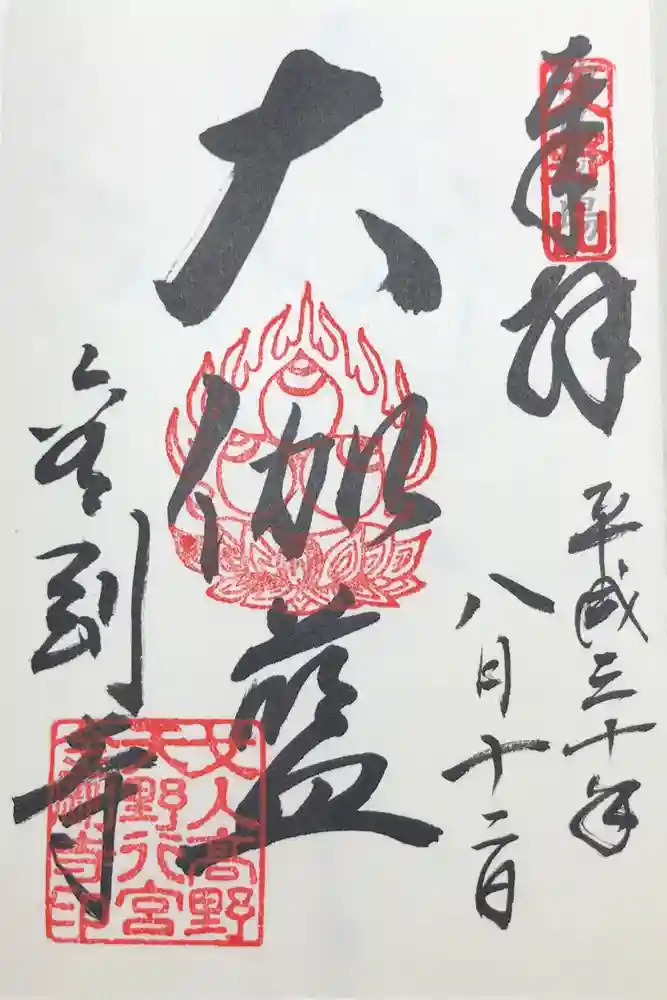 奉拝
平成三十年
八月十二日
大伽藍
金剛寺
天野山
女人高野
天野行宮
金剛寺印